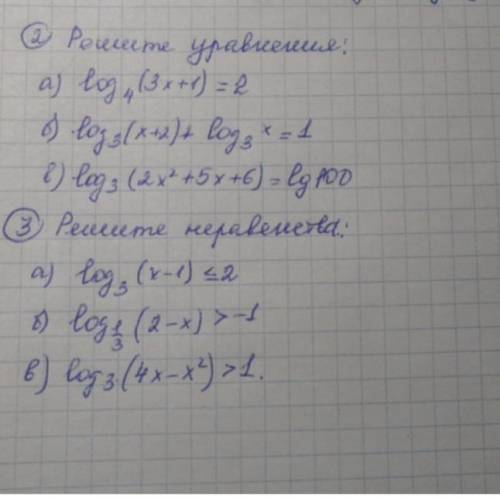 ② Решите уравнения:
а) log₄(3x+1)=2
б) log₃(x+2)+log₃x=1
в) log₃(2x²+5x+6)=lg100
③ Решите неравенства:
а) log₃(x-1)≤2
б) log_{1/3}(2-x)>-1
в) log₃(4x-x²)>1.